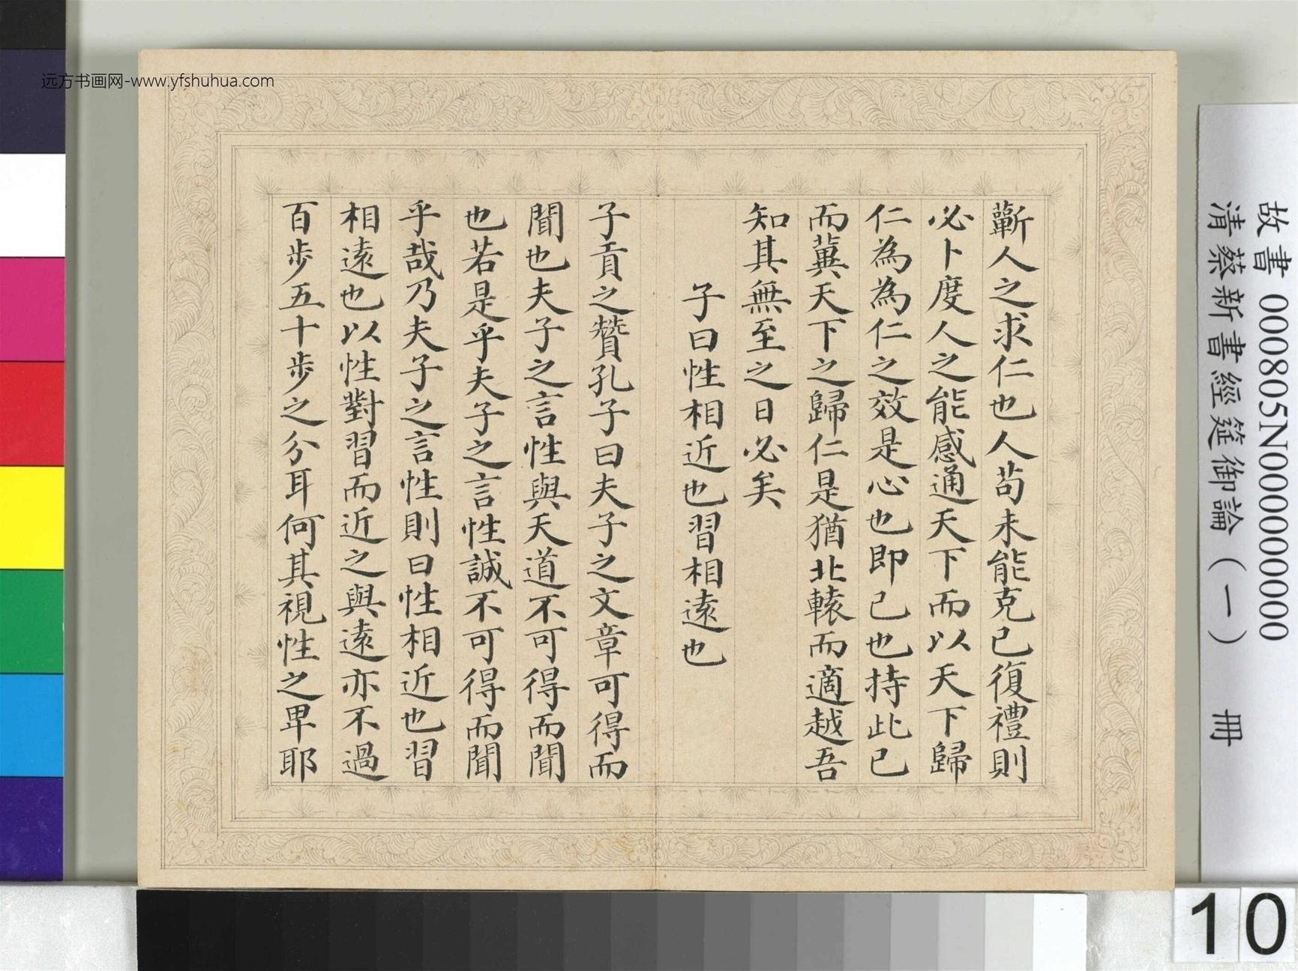 远方书画网-www.yfshuhua.com
蘄人之求仁也人苟未能克已復禮則
必卜度人之能感通天下而以天下歸
仁為為仁之效是心也即已也持此已
而冀天下之歸仁是猶北轅而適越吾
知其無至之日必矣
子曰性相近也習相遠也
子貢之贊孔子曰夫子之文章可得而
聞也夫子之言性與天道不可得而聞
也若是乎夫子之言性誠不可得而聞
乎哉乃夫子之言性則曰性相近也習
相遠也以性對習而近之與遠亦不過
百步五十步之分耳何其視性之卑耶
故書 000805N000000000
清蔡新書經筵御論（一） 冊
10